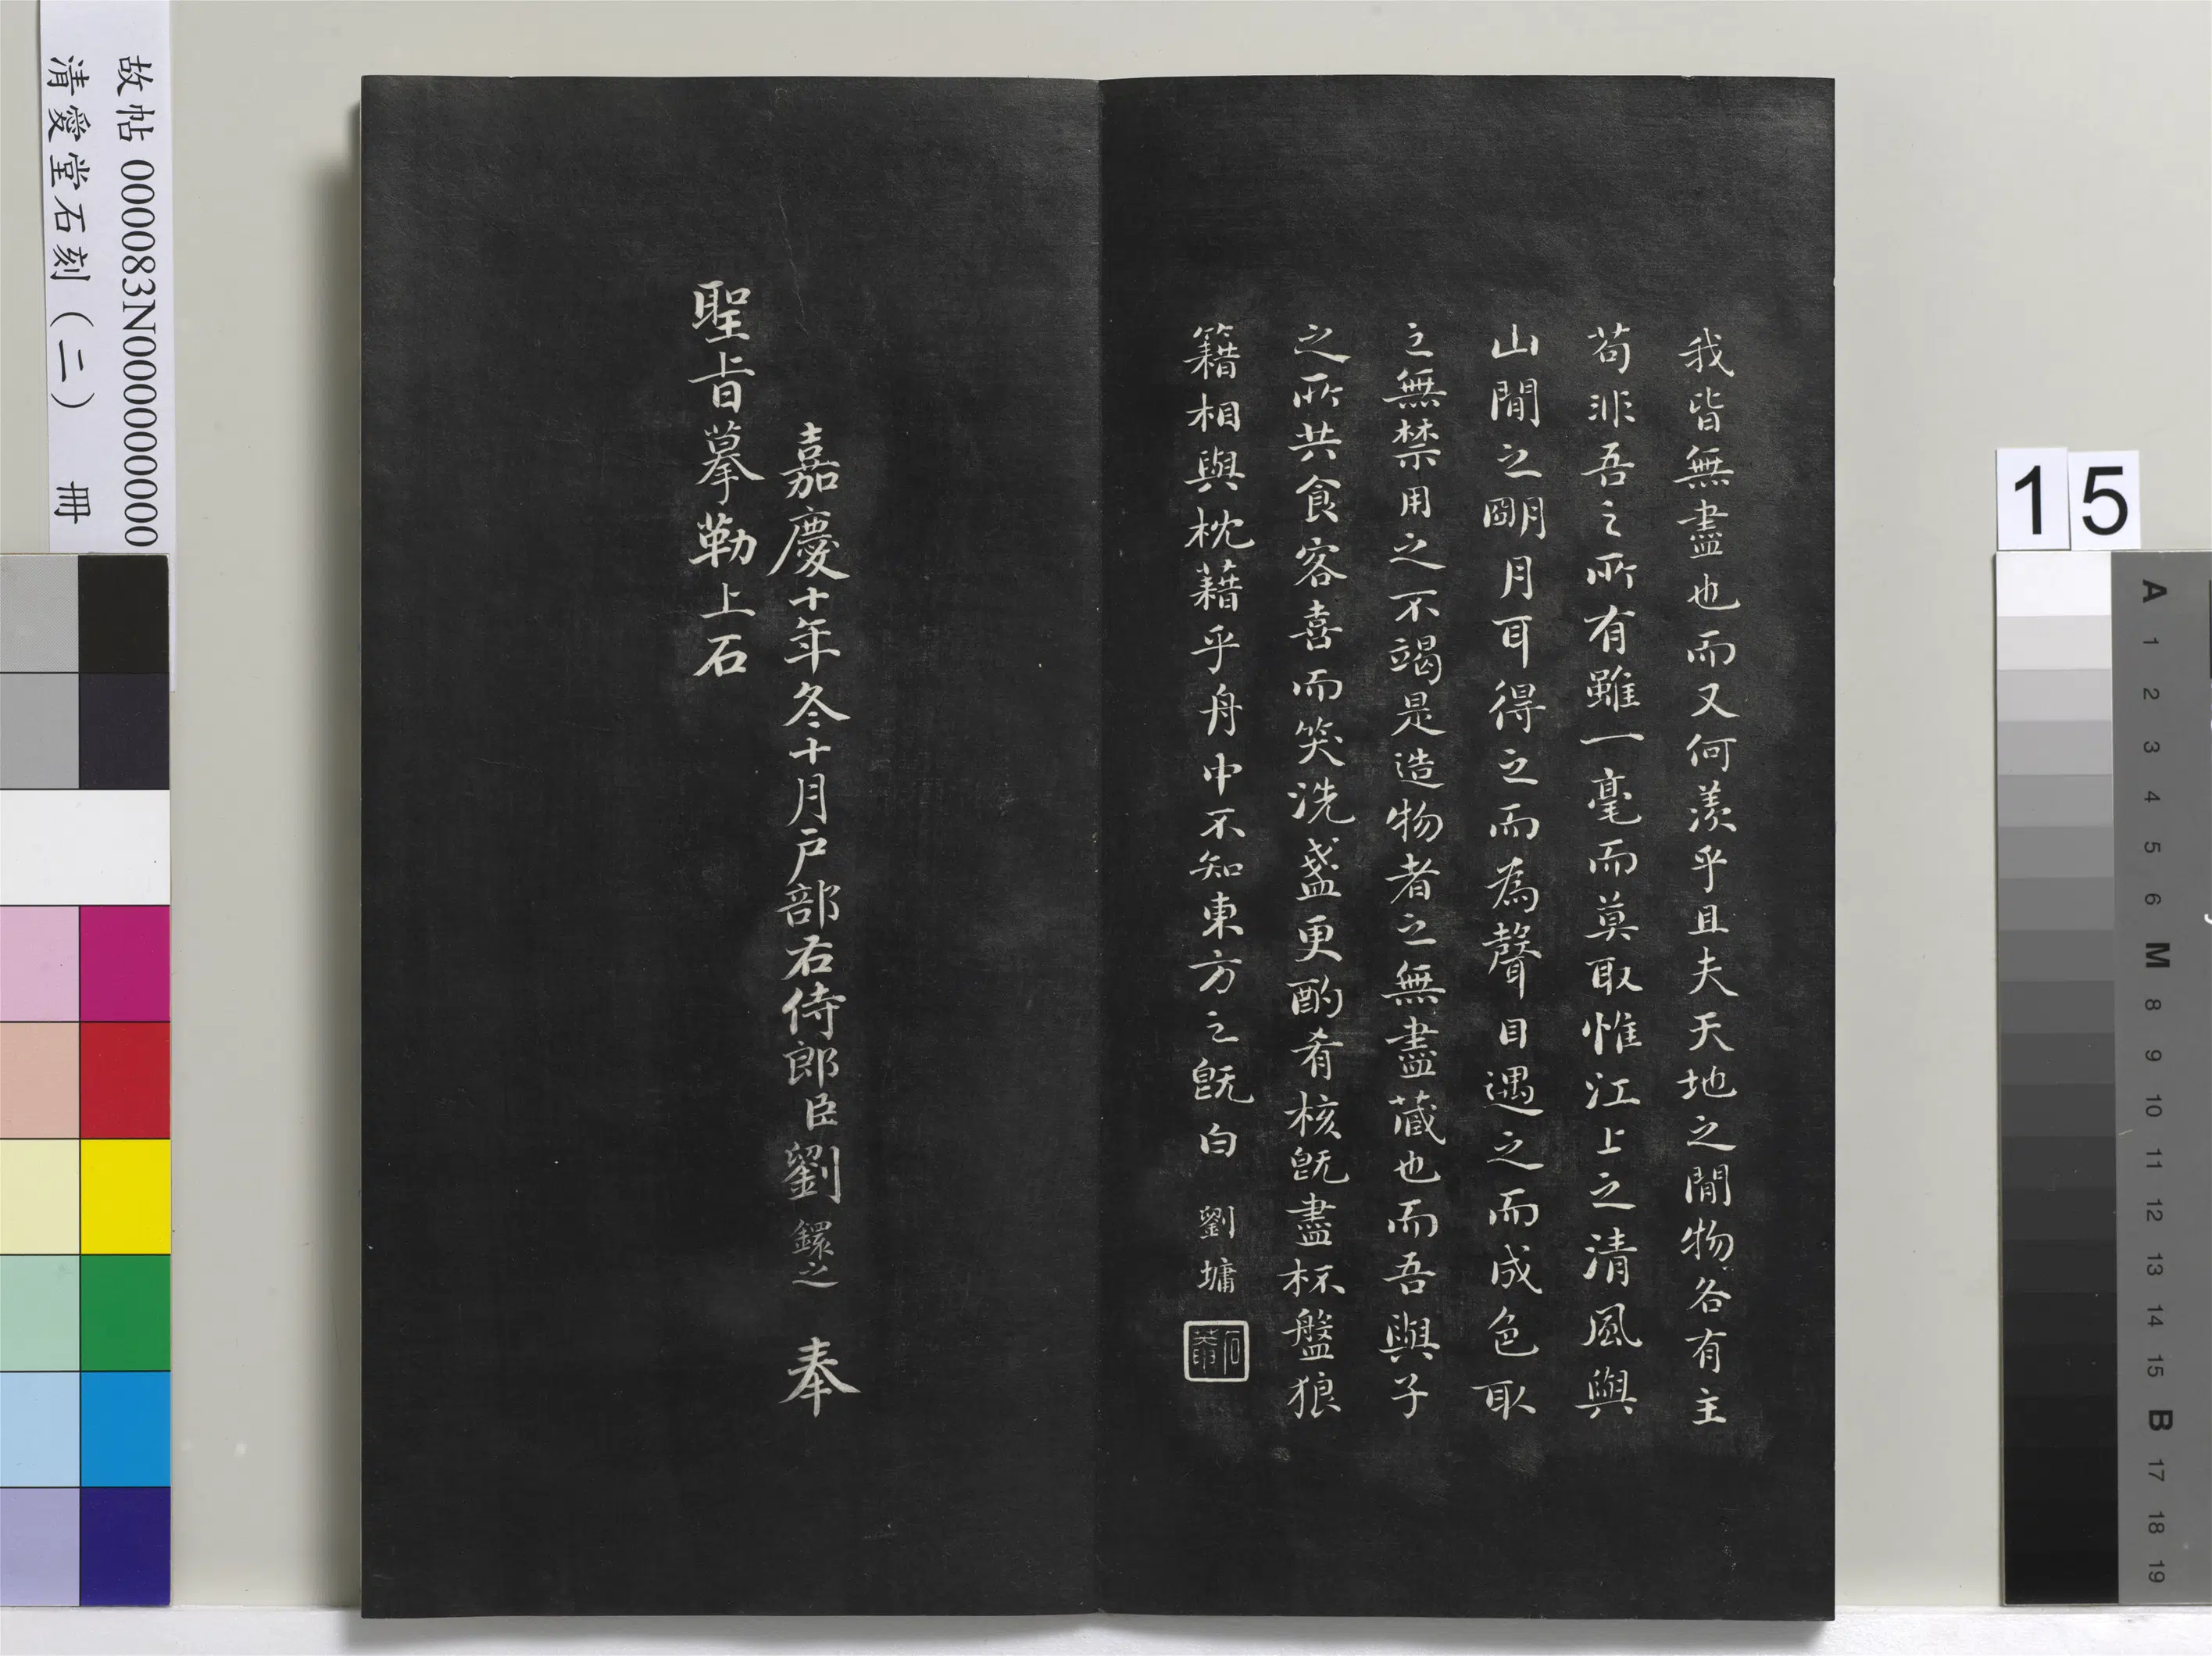 我皆無盡也而又何羨乎且夫天地之間物各有主
苟非吾之所有雖一毫而莫取惟江上之清風與
山間之朙月耳得之而為聲目遇之而成色取
之無禁用之不竭是造物者之無盡藏也而吾與子
之所共食客喜而笑洗盞更酌肴核旣盡杯盤狼
籍相與枕藉乎舟中不知東方之旣白 劉墉
石菴
嘉慶十年冬十月户部右侍郎臣劉鐶之 奉
聖旨摹勒上石
故帖 000083N000000000
清愛堂石刻(二) 冊
15
A 1 2 3 4 5 6 M 8 9 10 11 12 13 14 15 B 17 18 19